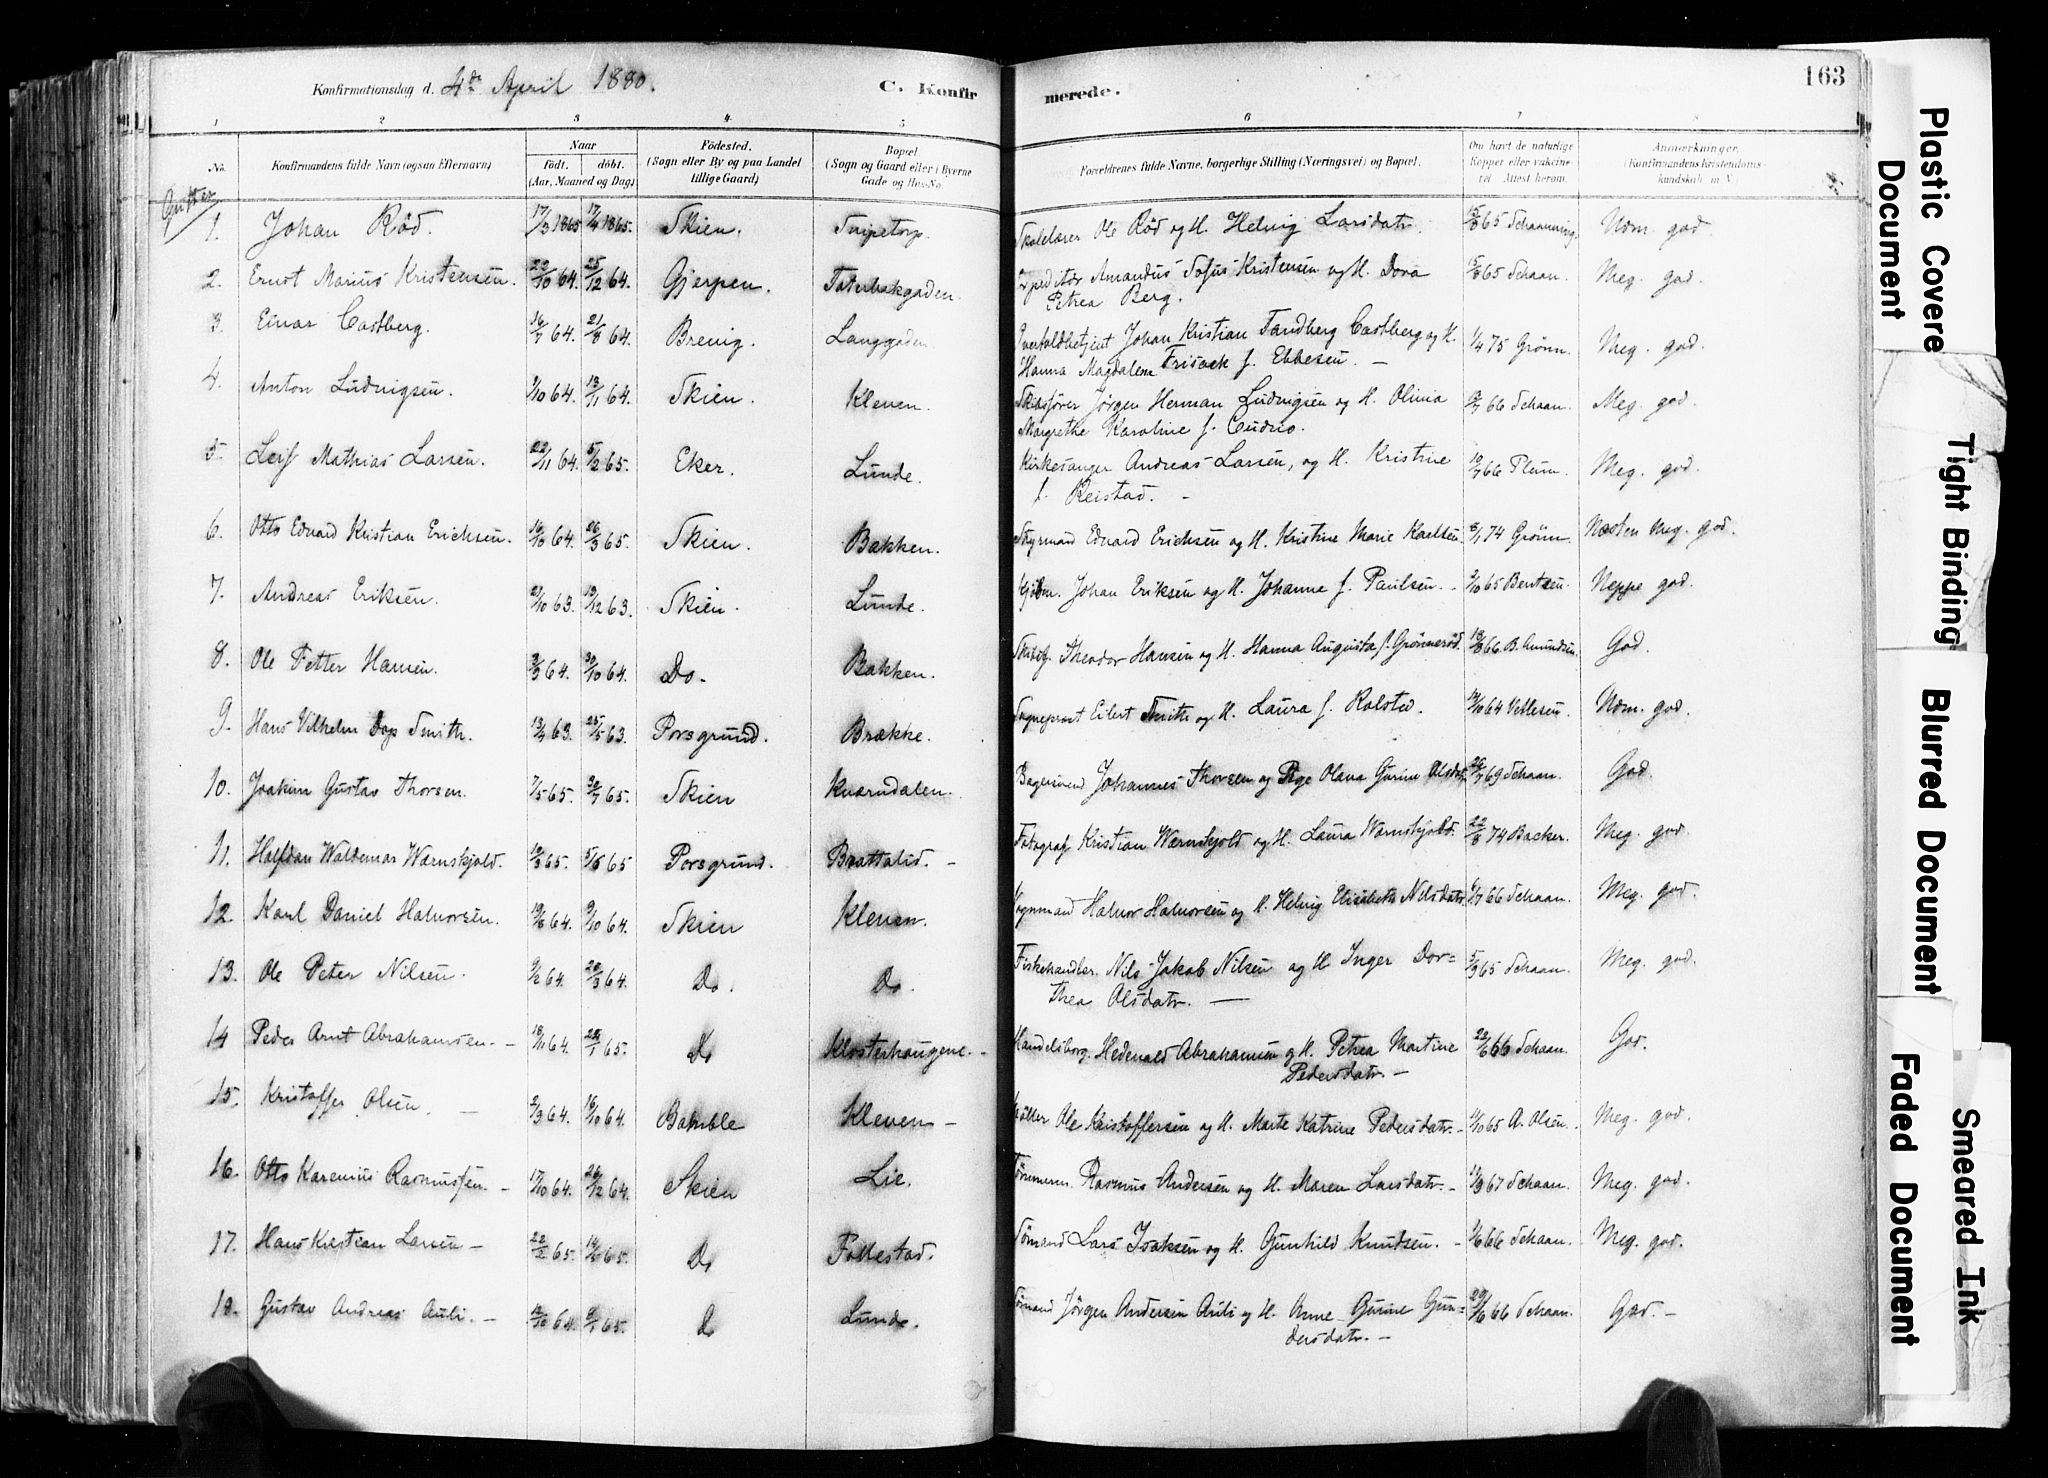 Konfirmationsdag d. 4de April 1880.
C. Konfirmerede.
163
1 2 3 4 5 6 7 8
No. Konfirmandens fulde Navn (ogsaa Efternavn) Naar Födt. döbt. (Aar, Maaned og Dag) Födested. (Sogn eller By og paa Landet tillige Gaard) Bopæl. (Sogn og Gaard eller i Byerne Gade og Hus-No. Forældrenes fulde Navne, borgerlige Stilling (Næringsvei) og Bopæl. Om havt de naturlige Kopper eller vaksineret. Attest herom. Anmærkninger. (Konfirmandens Kristendomskundskab m. V.)
Gutter
1. Johan Röd. 17/3 1865 17/4 1865. Skien. Snipetorp. Skolelærer Ole Röd og H. Helvig Larsdatr. 15/8 65 Schaanning. Udm. god.
2. Ernst Marius Kristensen. 22/10 64. 25/12 64. Gjerpen. Expeditör Amandus Sofus Kristensen og H. Dora
Petrea Berg. 5/8 65 Schaan. Meg. god.
3. Einar Castberg. 16/7 64. 21/8 64. Brevig. Langgaden Johan Kristian Tandberg Castberg og H.
Hanna Magdalena Frisack f. Ebbesen. — 1/4 75 Grönn. Meg. god.
4. Anton Ludvigsen. /10 64. 13/11 64. Skien. Kleven. Skibsförer Jörgen Herman Ludvigsen og H. Olivia
Margrethe Karoline f. 66 Schaan. Meg. god.
5. Leif Mathias Larsen. 22/11 64. 5/2 65. Eker. Lunde. Kirkesanger Andreas Larsen, og H. Kristine
f. Reistad. — 66 Plum. Meg. god.
6. Otto Edvard Kristian Erichsen. 16/10 64. 26/3 65. Skien. Bakken. Styrmand Edvard Erichsen og H. Kristine Marie Karlsen. 8/1 74 Grönn. Næsten meg. god.
7. Andreas Eriksen. 21/10 63. 63. Skien. Lunde. Johan Eriksen og H. Johanne f. Paulsen. 2/10 65 Bentsen. Neppe god.
8. Ole Petter Hansen. 3/3 64. 30/10 64. Do. Bakken. Theodor Hansen og H. Hanna Augusta f. Grönneröd. 18/8 66 B. Amundsen. God.
9. Hans Vilhelm Dop Smith. 13/4 63. 25/5 63. Porsgrund. Brække. Sogneprest Eilert Smith og H. Laura f. Rolsted. 64 Vettesen. Udm. god.
10. Joakim Gustav Thorsen. 7/5 65. 65. Skien Kværndalen. Bagersvend Johannes Thorsen og Pige Olava Gurine Olsdatr. 69 Schaan. God.
11. Halfdan Waldemar Wærnskjold. 19/3 65. 5/6 65 Porsgrund. Brattalid. — Fotograf Kristian Wærnskjold og H. Laura Wærnskjold. 22/8 74 Backer. Meg. god.
12. Karl Daniel Halvorsen. 19/6 64. 9/10 64. Skien Kleven. Halvor Halvorsen og H. Helvig Elisabeth Nilsdatr. 66 Schaan. Meg. god.
13. Ole Peter Nilsen. 9/2 64. 20/3 64. Do. Do. Fiskehandler. Nils Jakob Nilsen og H. Inger Dor=
thea Olsdatr. — 5/9 65 Schaan. Meg. god.
14 Peder Arnt Abrahamsen. — 18/11 64. 28/1 65. Do Klosterhaugene. — Handelsborg. Hedevald Abrahamsen og H. Petrea Martine
Pedersdatr. — 22/6 66 Schaan. God.
15. Kristoffer Olsen. — 2/3 64. 16/10 64. Bamble Kleven — Ole Kristoffersen og H. Marte Katrine Pedersdatr. — 65 A. Olsen. Meg. god.
16. Otto Karenius Rasmussen. — 17/10 64. 26/12 64. Skien Lie. Tömmerm. Rasmus Andersen og H. Maren Larsdatr. — 67 Schaan. Meg. god.
17. Hans Kristian Larsen — 22/2 65. 65. Do Follestad. Sömand Lars Isaksen og H. Gunhild Knudsen. — 66 Schaan. Meg. god.
18. Gustav Andreas Auli. — 64. 65. Do Lunde. Sömand Jörgen Andersen Auli og H. Anne Gurine Gun=
dersdatr. — 29/6 66 Schaan. God. —
Plastic Covered
Document
Tight Binding
Blurred Document
Faded Document
Smeared Ink